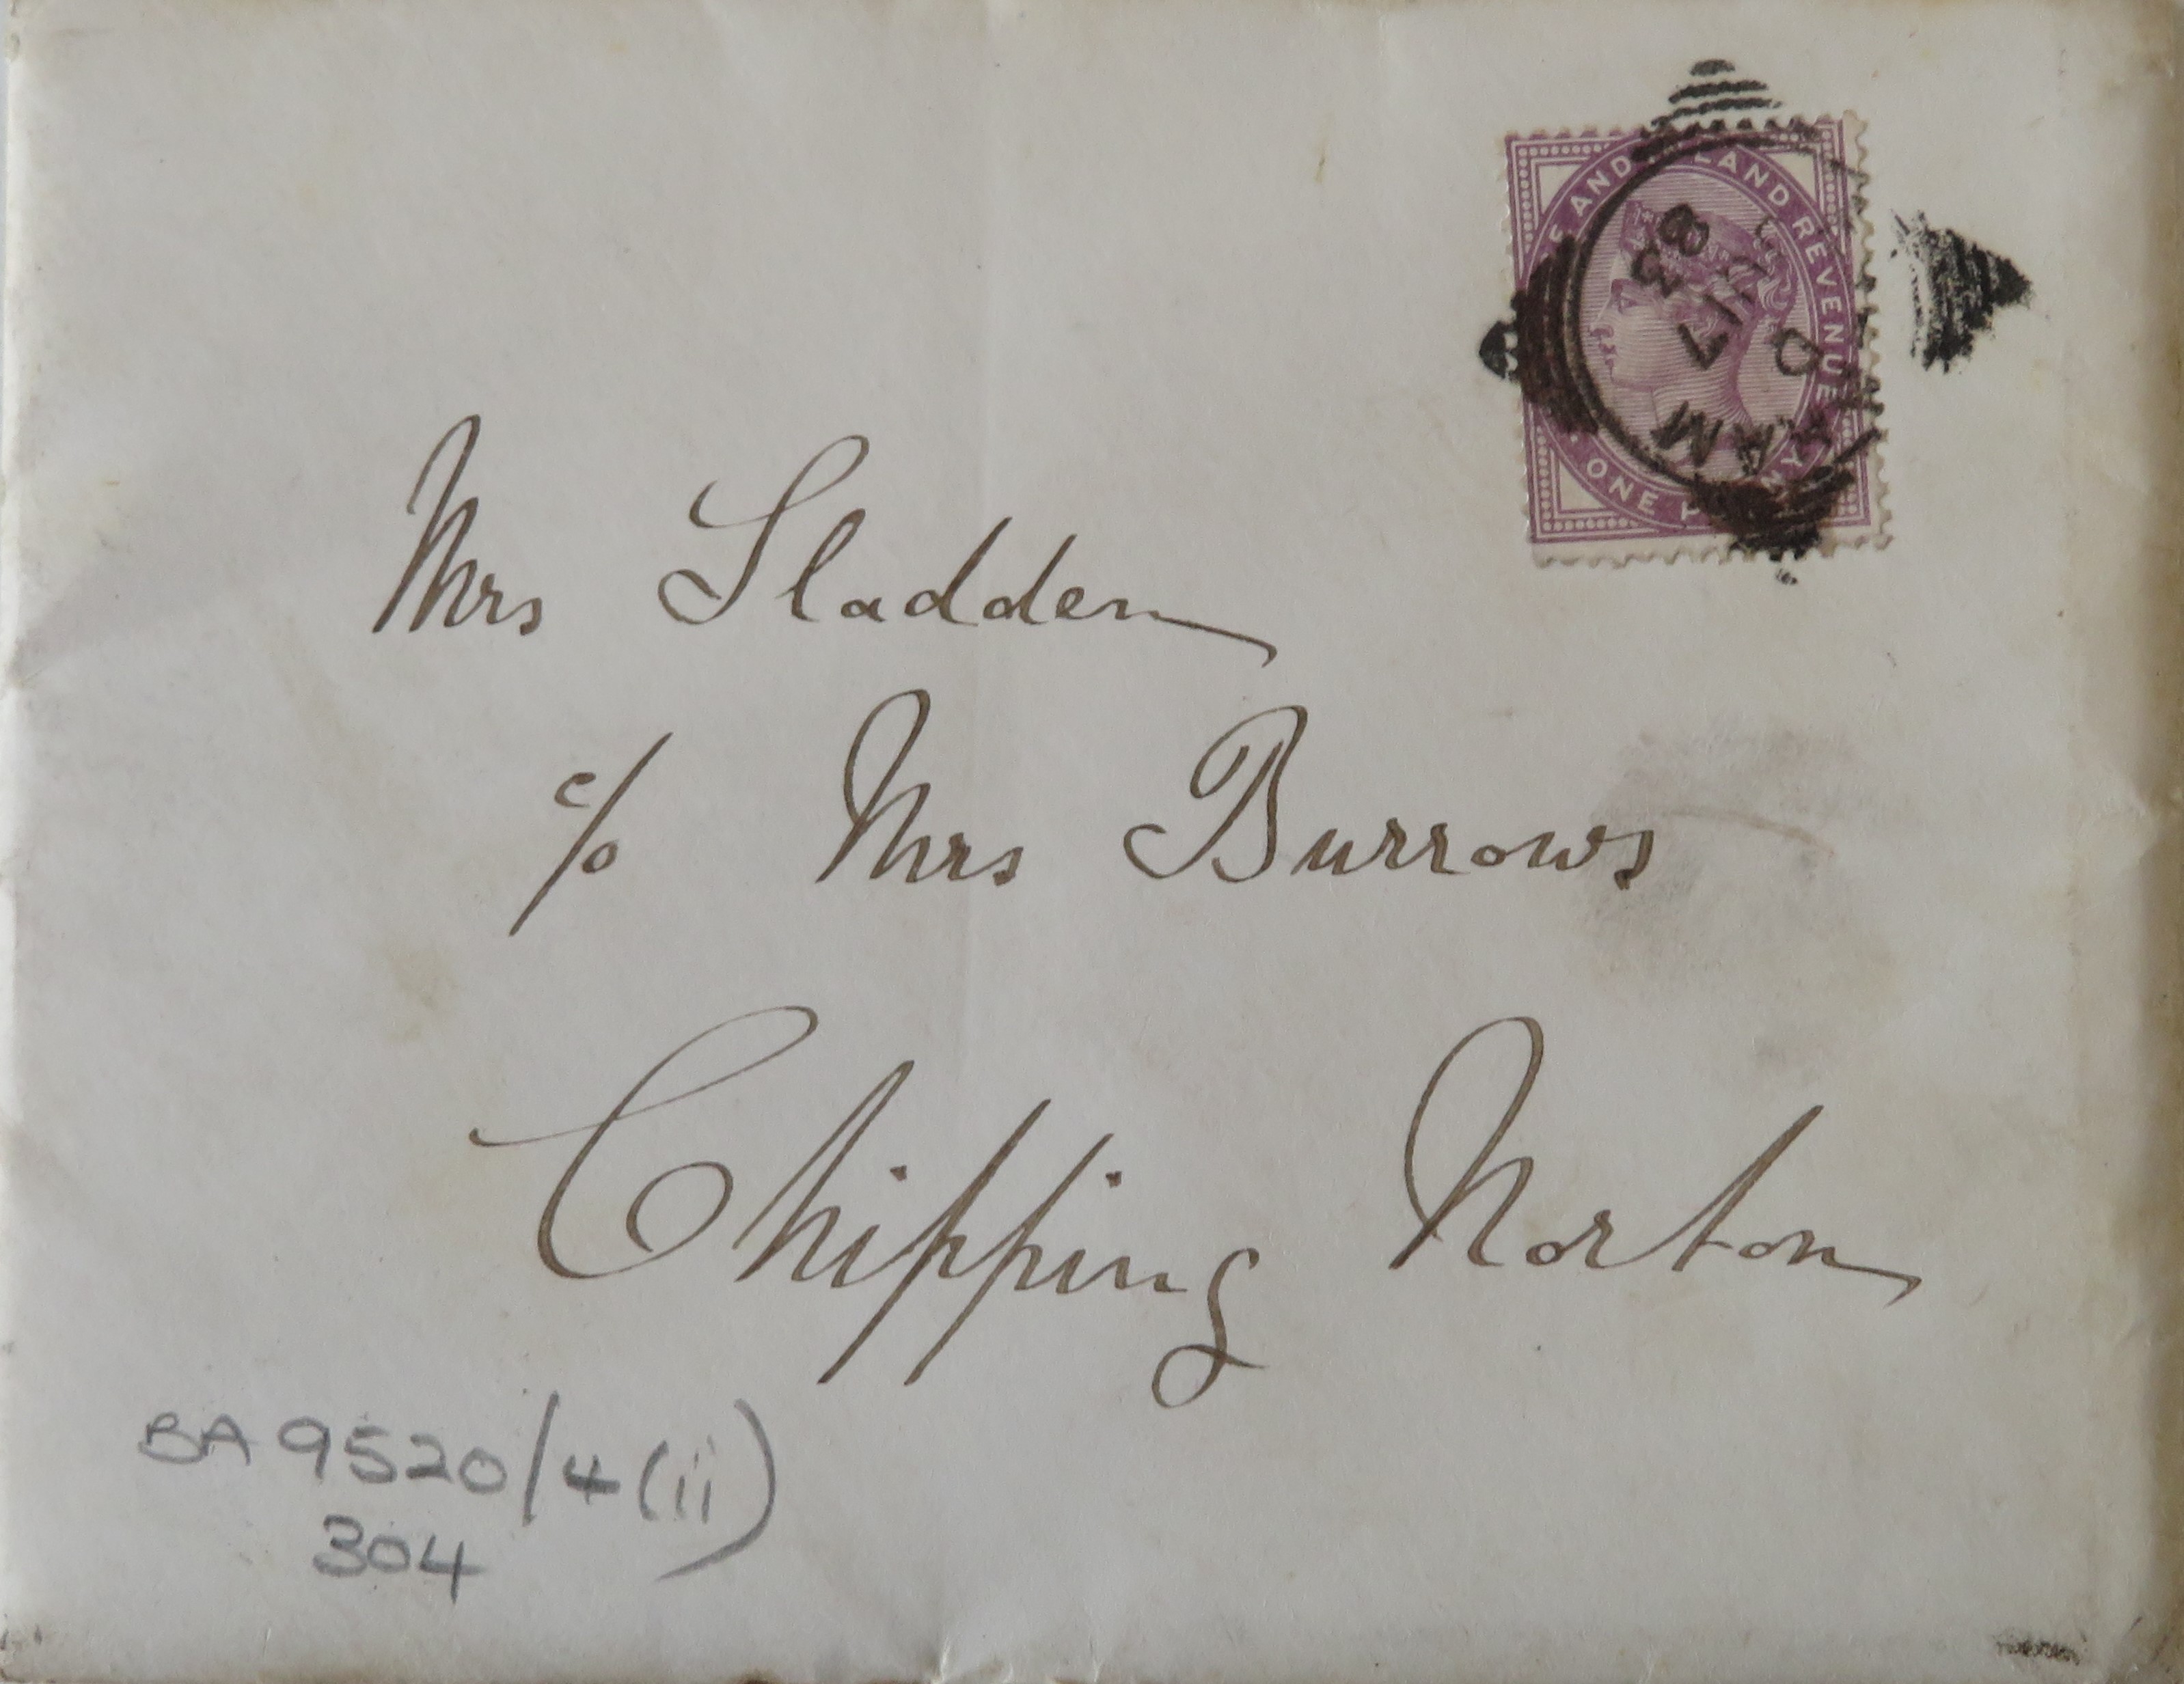 AND INLAND REVENUE
ONE PENNY
AM
83
Mrs Sladden
c/o Mrs Burrows
Chipping Norton
BA 9520/4(ii)
304